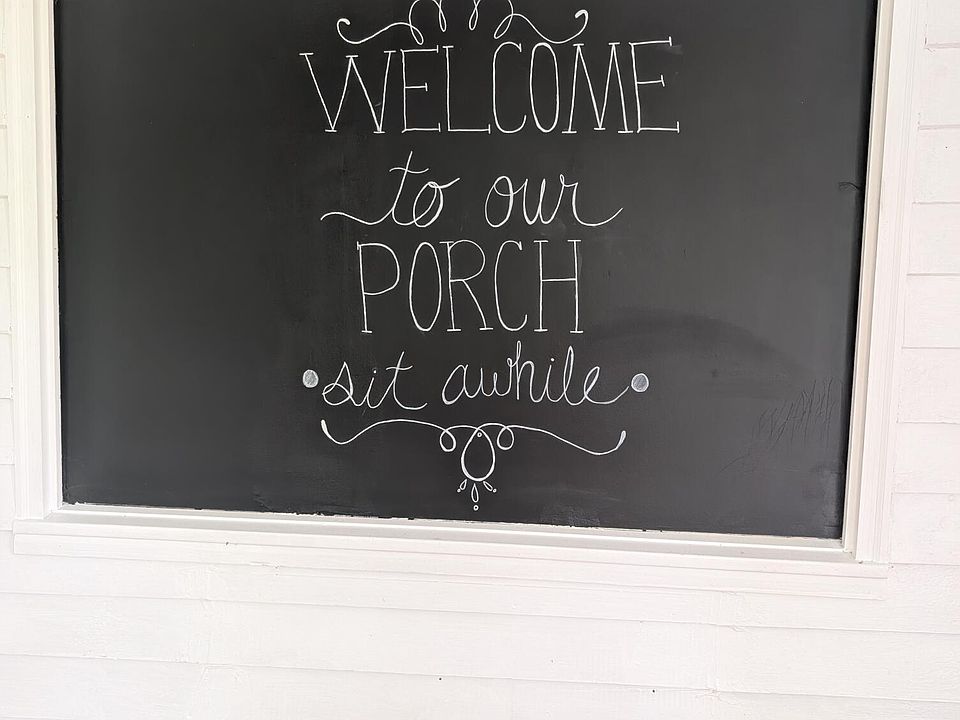 WELCOME
to our
PORCH
sit awhile